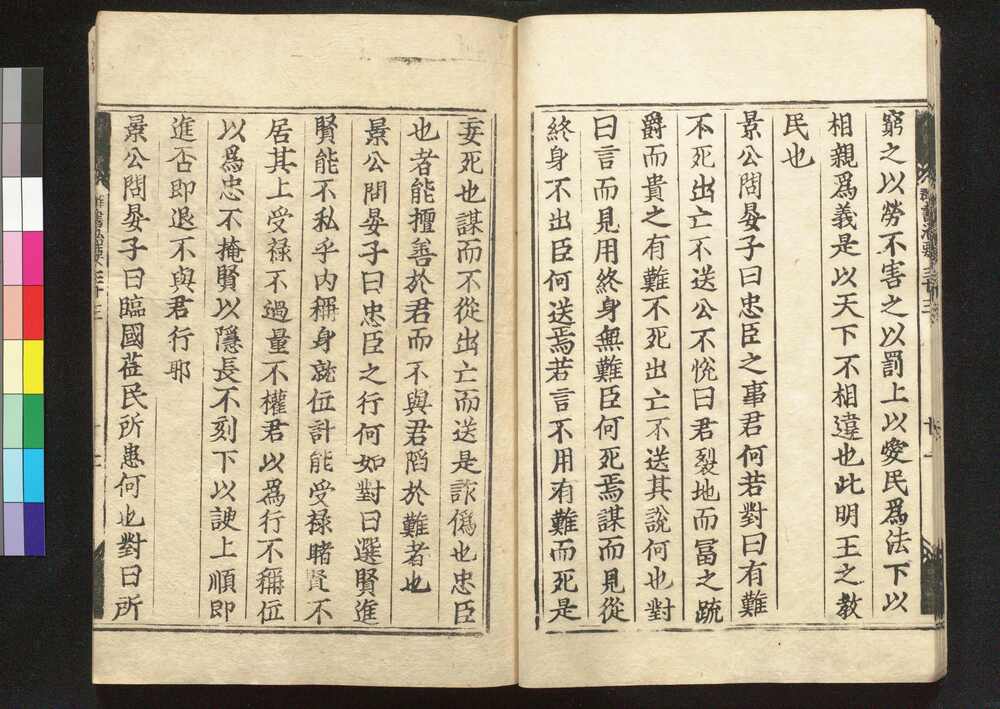 窮之以勞不害之以罰上以愛民爲法下以
相親爲義是以天下不相違也此明王之敎
民也
景公問晏子曰忠臣之事君何若對曰有難
不死出亡不送公不悅曰君裂地而冨之疏
爵而貴之有難不死出亡不送其說何也對
曰言而見用終身無難臣何死焉謀而見從
終身不出臣何送焉若言不用有難而死是
妄死也謀而不從出亡而送是詐僞也忠臣
也者能擅善於君而不與君䧟於難者也
景公問晏子曰忠臣之行何如對曰選賢進
賢能不私乎內稱身就位計能受祿睹賢不
居其上受祿不過量不權君以爲行不稱位
以爲忠不掩賢以隱長不刻下以諛上順即
進否即退不與君行邪
景公問晏子曰臨國莅民所患何也對曰所
群書治要三十三